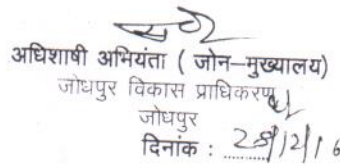 अधिशाषी अभियंता ( जोन–मुख्यालय)
जोधपुर विकास प्राधिकरण
जोधपुर
दिनांक :